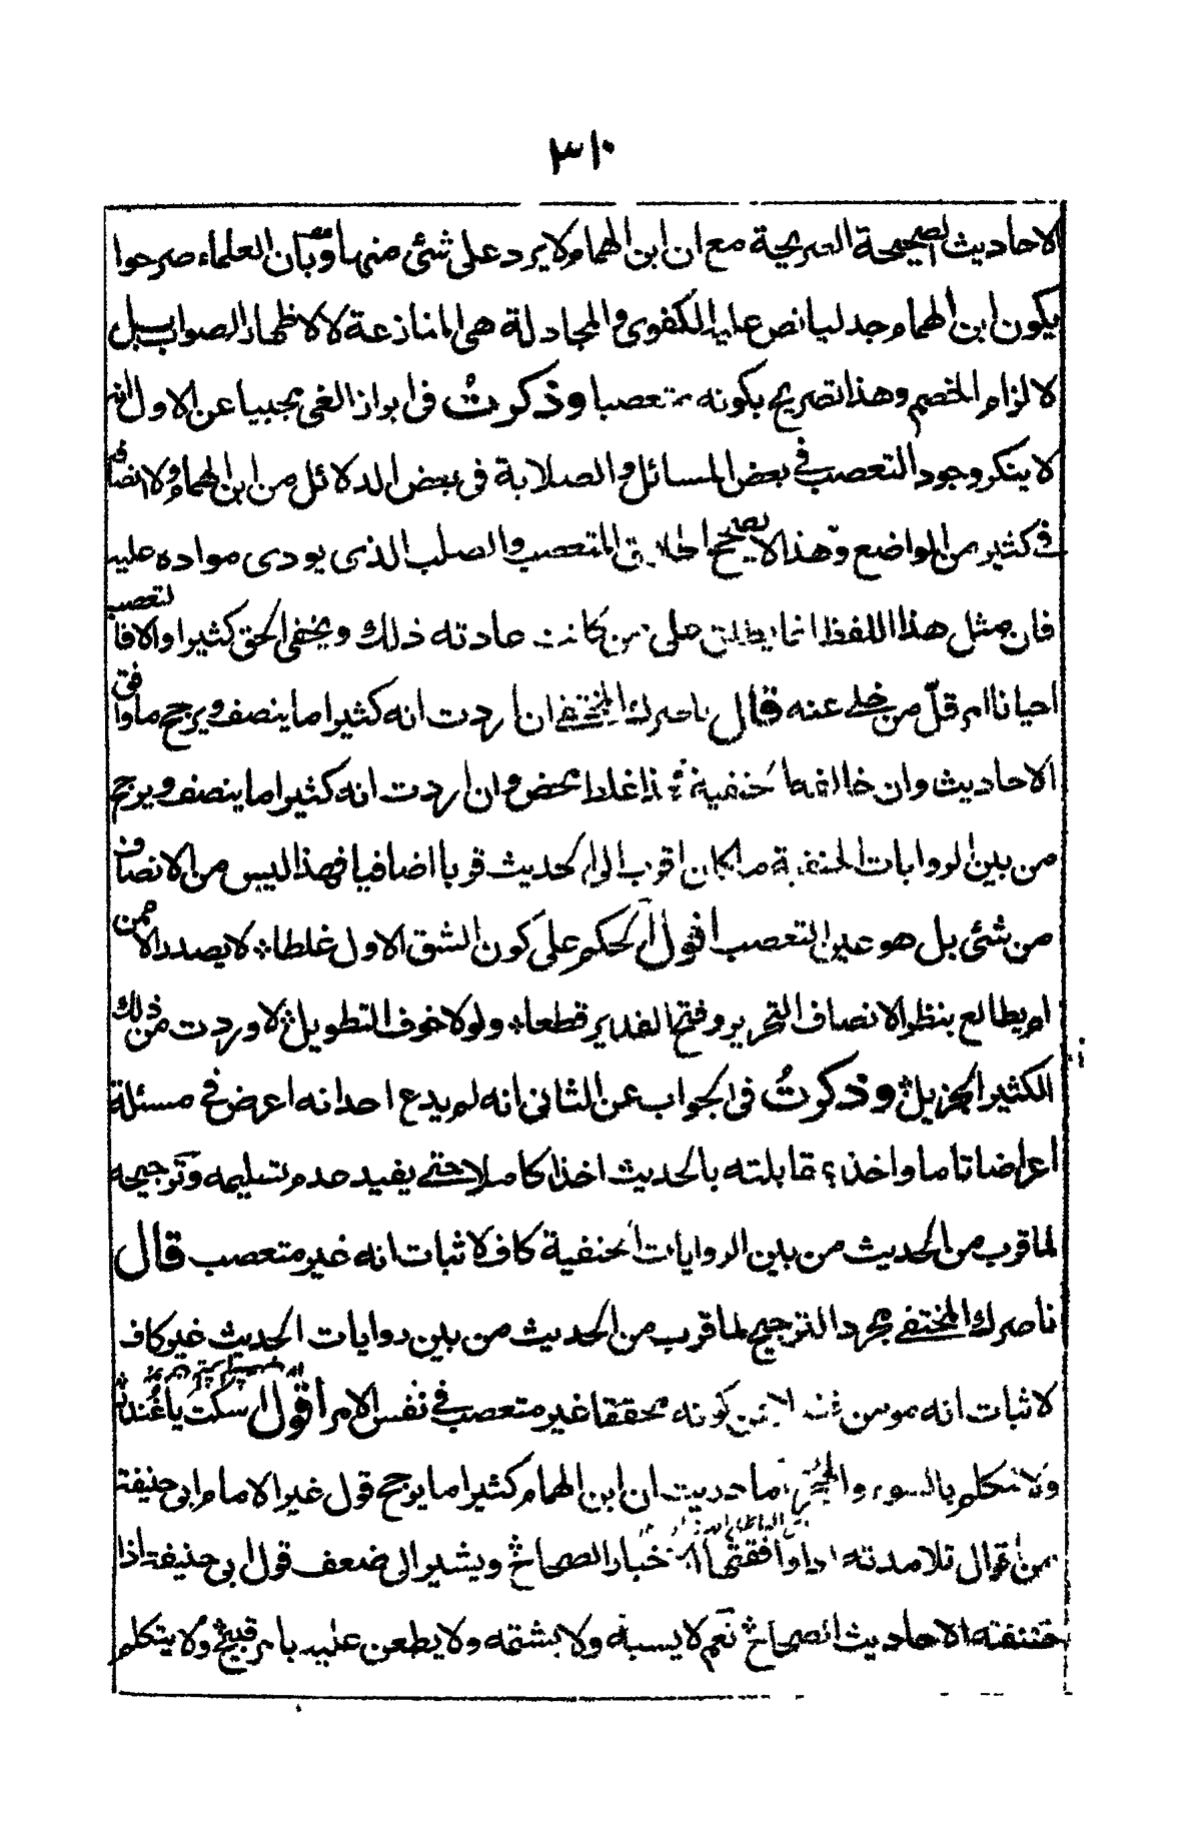 ٣١٠
الاحاديث الصحيحة الصريحة مع ان ابن الهمام لا يرد على شئ منها وبان العلماء صرحوا
بكون ابن الهمام جدليا نص عليه الكفوى والمجادلة هى المنازعة لا لاظهار الصواب بل
لالزام الخصم وهذا تصريح بكونه متعصبا وذكرتُ فى ابراز الغى مجيبا عن الاول انه
لا ينكر وجود التعصب فى بعض المسائل والصلابة فى بعض الدلائل من ابن الهمام ولا انصافه
فى كثير من المواضع وهذا لا يصحح اطلاق المتعصب والصلب الذى يودى مواده عليه
فان مثل هذا اللفظ انما يطلق على من كانت عادته ذلك ويخفى الحق كثيرا والا فالتعصب
احيانا امر قلّ من خلى عنه قال ناصرك المختفى ان اردت انه كثيرا ما ينصف ويرجح ما وافق
الاحاديث وان خالفها الحنفية فهذا غلط محض وان اردت انه كثيرا ما ينصف ويرجح
من بين الروايات الحنفية ما كان اقرب الى الحديث قربا اضافيا فهذا ليس من الانصاف
من شئ بل هو عين التعصب اقول الحكم على كون الشق الاول غلطا لا يصدر الا ممن
لم يطالع بنظر الانصاف التحرير وفتح القدير قطعا ولولا خوف التطويل لاوردت من ذلك
الكثير الجزيل وذكرتُ فى الجواب عن الثانى انه لم يدع احد انه اعرض فى مسئلة
اعراضا تاما واخذ بمقابلته بالحديث اخذا كاملا حتى يفيد عدم تسليمه وترجيحه
لما قرب من الحديث من بين الروايات الحنفية كاف لاثبات انه غير متعصب قال
ناصرك المختفى مجرد الترجيح لما قرب من الحديث من بين روايات الحديث غير كاف
لاثبات انه مومن فضلا عن كونه محققا غير متعصب فى نفس الامر اقول اسكت يا غُندر
ولا تتكلم بالسوء والهجر اما دريت ان ابن الهمام كثيرا ما يرجح قول غير الامام ابى حنيفة
من اقوال تلامذته اذا وافقتها الاخبار الصحاح ويشير الى ضعف قول ابى حنيفة اذا
خالفته الاحاديث الصحاح نعم لا يسبه ولا يشتمه ولا يطعن عليه بامر قبيح ولا يتكلم